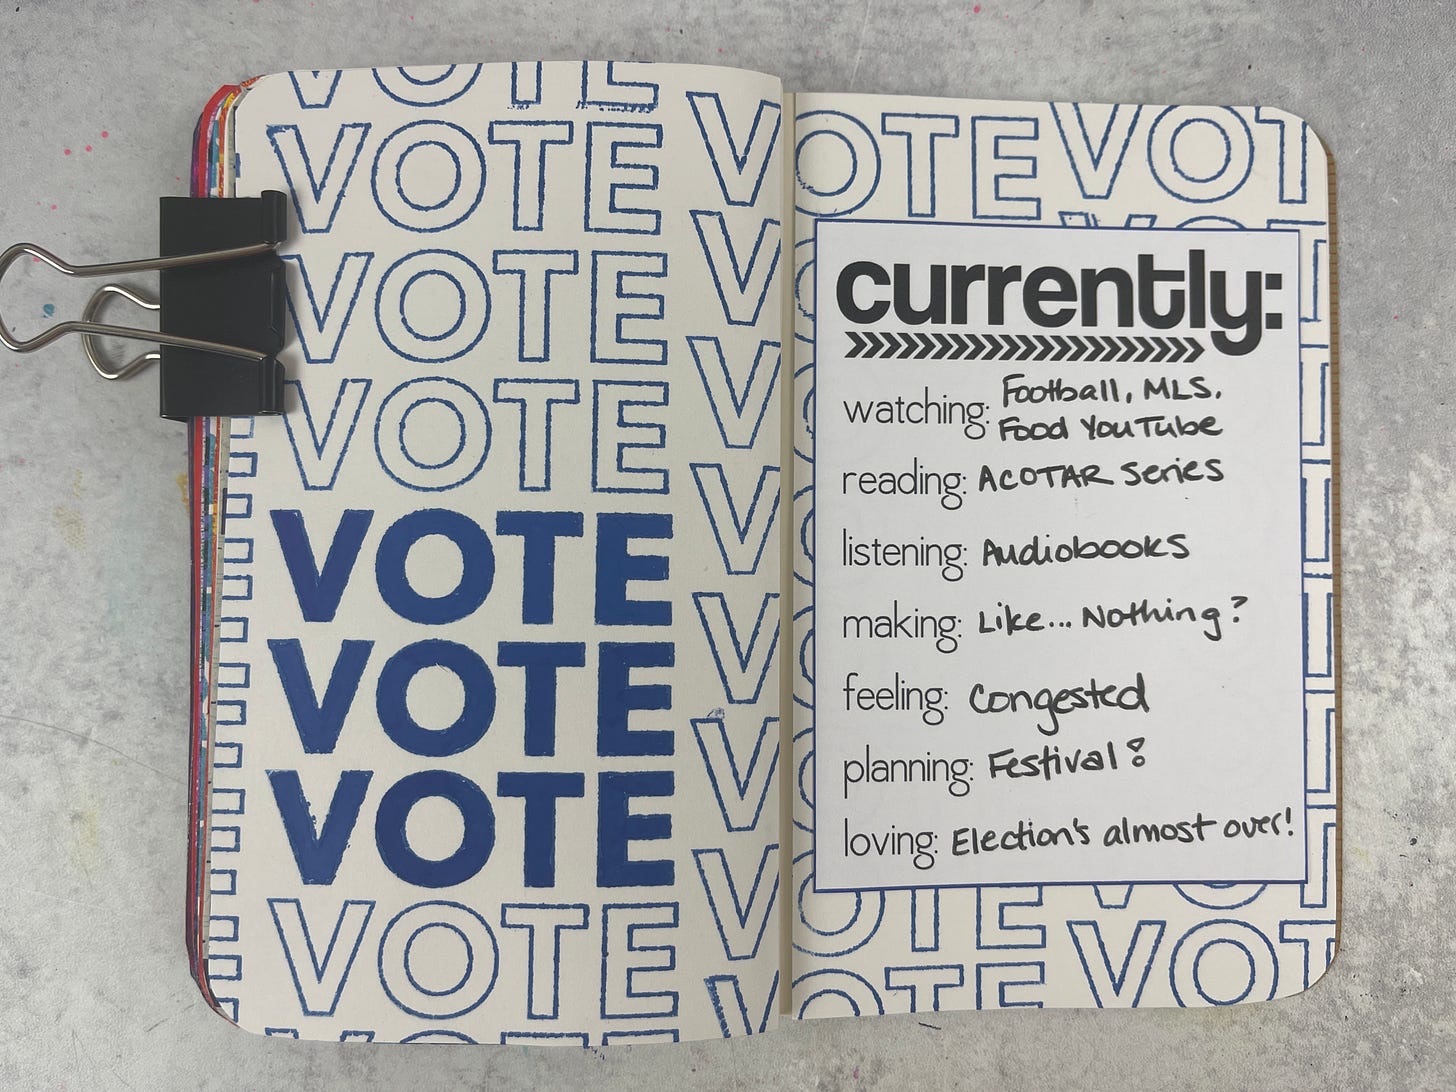 VOTE
VOTE
VOTE
VOTE
VOTE
VOTE
VOTE
VOTE
VOTE VOT
currently:
watching: Football, MLS.
Food YouTube
reading: ACOTAR Series
listening: Audiobooks
making: Like... Nothing?
feeling: Congested
planning: Festival!
loving: Election's almost over!
VOTE VOT
VOTE